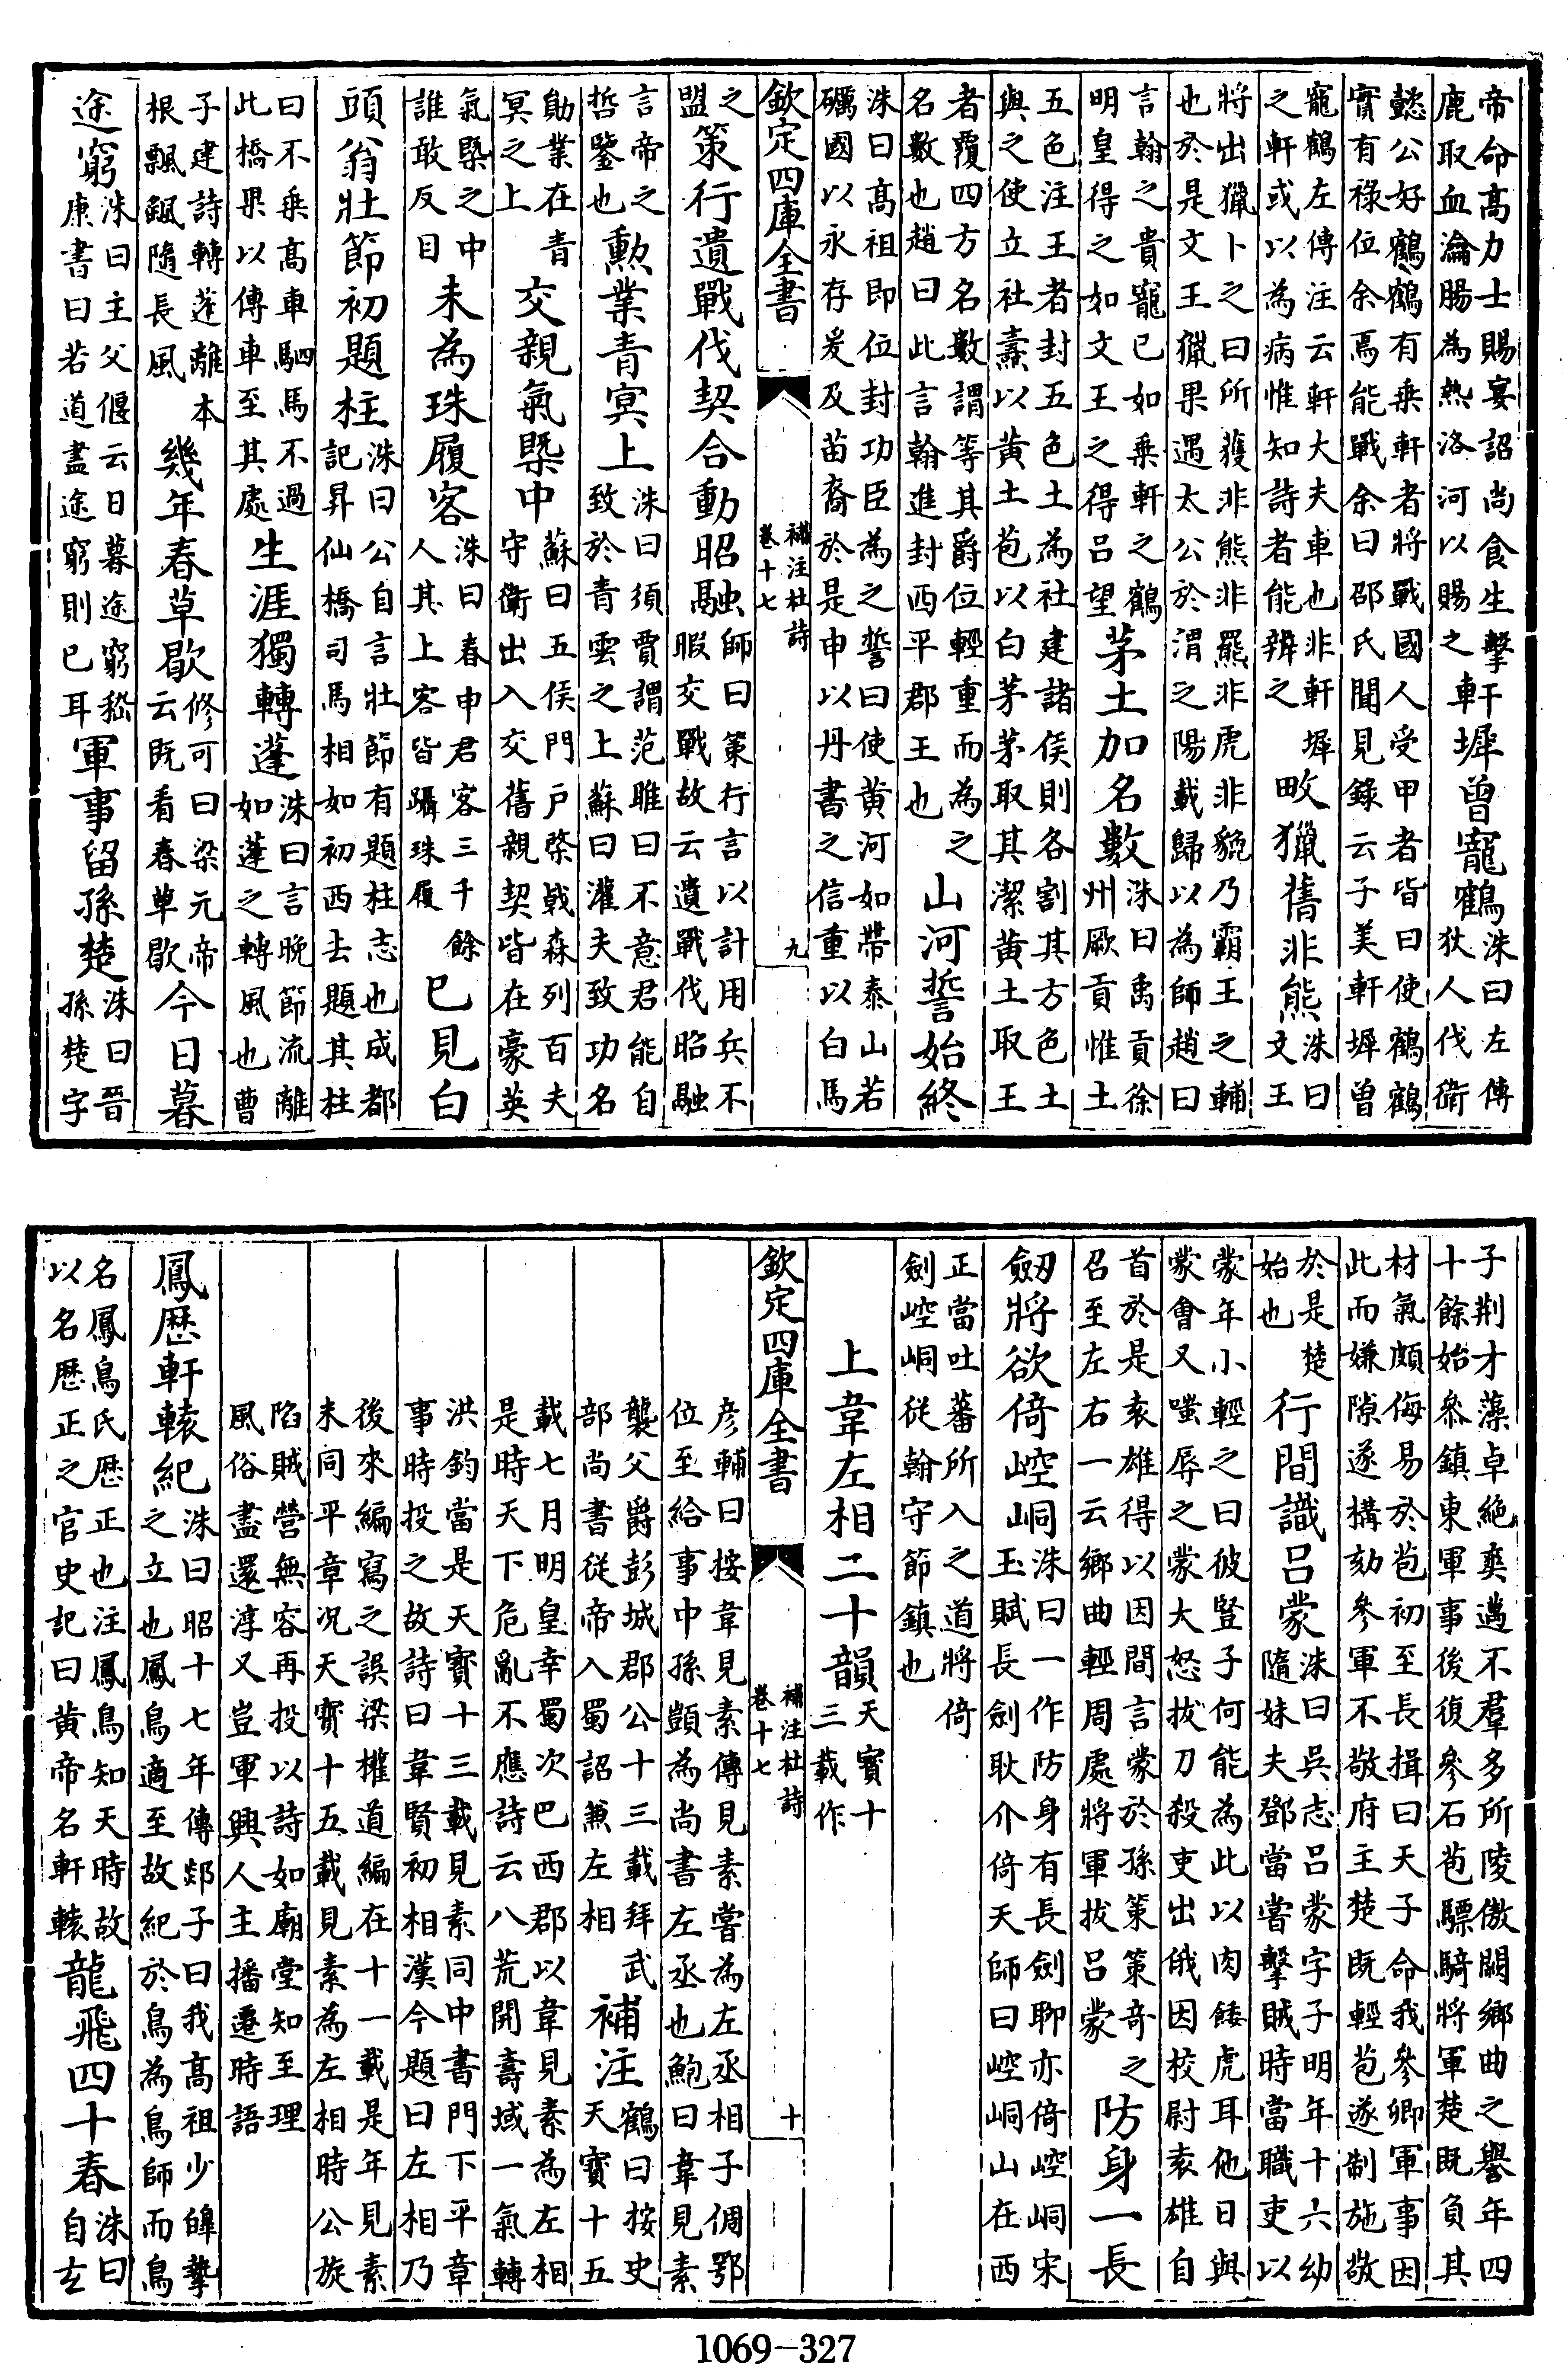 帝命髙力士賜宴詔尚食生擊
鹿取血瀹腸為熱洛河以賜之
軒墀曾寵鶴
洙曰左傳
狄人伐衛
懿公好鶴鶴有乗軒者將戰國人受甲者皆曰使鶴鶴
實有祿位余焉能戰余曰邵氏聞見錄云子美軒墀曾
寵鶴左傳注云軒大夫車也非軒墀
之軒或以為病惟知詩者能辨之
畋獵舊非熊
洙曰
文王
將出獵卜之曰所獲非熊非羆非虎非貔乃霸王之輔
也於是文王獵果遇太公於渭之陽載歸以為師趙曰
言翰之貴寵已如乗軒之鶴
明皇得之如文王之得吕望
茅土加名數
洙曰禹貢徐
州厥貢惟土
五色注王者封五色土為社建諸侯則各割其方色土
與之使立社燾以黄土苞以白茅茅取其潔黄土取王
者覆四方名數謂等其爵位輕重而為之
名數也趙曰此言翰進封西平郡王也
山河誓始終
洙曰髙祖即位封功臣為之誓曰使黄河如帶泰山若
礪國以永存爰及苗裔於是申以丹書之信重以白馬
欽定四庫全書
補注杜詩
卷十七
九
之
盟
策行遺戰伐契合動昭融
師曰策行言以計用兵不
暇交戰故云遺戰伐昭融
言帝之
哲鑒也
勲業青冥上
洙曰須賈謂范雎曰不意君能自
致於青雲之上蘇曰灌夫致功名
勛業在青
冥之上
交親氣槩中
蘇曰五侯門户棨戟森列百夫
守衛出入交舊親契皆在豪英
氣槩之中
誰敢反目
未為珠履客
洙曰春申君客三千餘
人其上客皆躡珠履
已見白
頭翁壯節初題柱
洙曰公自言壯節有題柱志也成都
記昇仙橋司馬相如初西去題其柱
曰不乗髙車駟馬不過
此橋果以傳車至其處
生涯獨轉蓬
洙曰言晚節流離
如蓬之轉風也曹
子建詩轉蓬離本
根飄飖隨長風
幾年春草歇
修可曰梁元帝
云既看春草歇
今日暮
途窮
洙曰主父偃云日暮途窮嵇
康書曰若道盡途窮則已耳
軍事留孫楚
洙曰晉
孫楚字
子荆才藻卓絶奕邁不羣多所陵傲闕鄉曲之譽年四
十餘始叅鎮東軍事後復參石苞驃騎將軍楚既負其
材氣頗侮易於苞初至長揖曰天子命我參卿軍事因
此而嫌隙遂搆劾參軍不敬府主楚既輕苞遂制施敬
於是楚
始也
行間識吕蒙
洙曰吳志吕蒙字子明年十六幼
隨妹夫鄧當當嘗擊賊時當職吏以
蒙年小輕之曰彼豎子何能為此以肉餧虎耳他日與
蒙㑹又嗤辱之蒙大怒拔刀殺吏出俄因校尉袁雄自
首於是袁雄得以因間言蒙於孫策策奇之
召至左右一云鄉曲輕周處將軍拔吕蒙
防身一長
劒將欲倚崆峒
洙曰一作防身有長劍聊亦倚崆峒宋
玉賦長劍耿介倚天師曰崆峒山在西
正當吐蕃所入之道將倚
劍崆峒從翰守節鎮也
上韋左相二十韻
天寳十
三載作
欽定四庫全書
補注杜詩
卷十七
十
彦輔曰按韋見素傳見素嘗為左丞相子倜鄂
位至給事中孫顗為尚書左丞也鮑曰韋見素
襲父爵彭城郡公十三載拜武
部尚書從帝入蜀詔兼左相
補注
鶴曰按史
天寳十五
載七月明皇幸蜀次巴西郡以韋見素為左相
是時天下危亂不應詩云八荒開壽域一氣轉
洪鈞當是天寳十三載見素同中書門下平章
事時投之故詩曰韋賢初相漢今題曰左相乃
後來編寫之誤梁權道編在十一載是年見素
未同平章况天寳十五載見素為左相時公旋
陷賊營無容再投以詩如廟堂知至理
風俗盡還淳又豈軍興人主播遷時語
鳳歴軒轅紀
洙曰昭十七年傳郯子曰我髙祖少皥摯
之立也鳳鳥適至故紀於鳥為鳥師而鳥
名鳳鳥氏歴正也注鳳鳥知天時故
以名歴正之官史記曰黄帝名軒轅
龍飛四十春
洙曰
自𤣥
1069-327